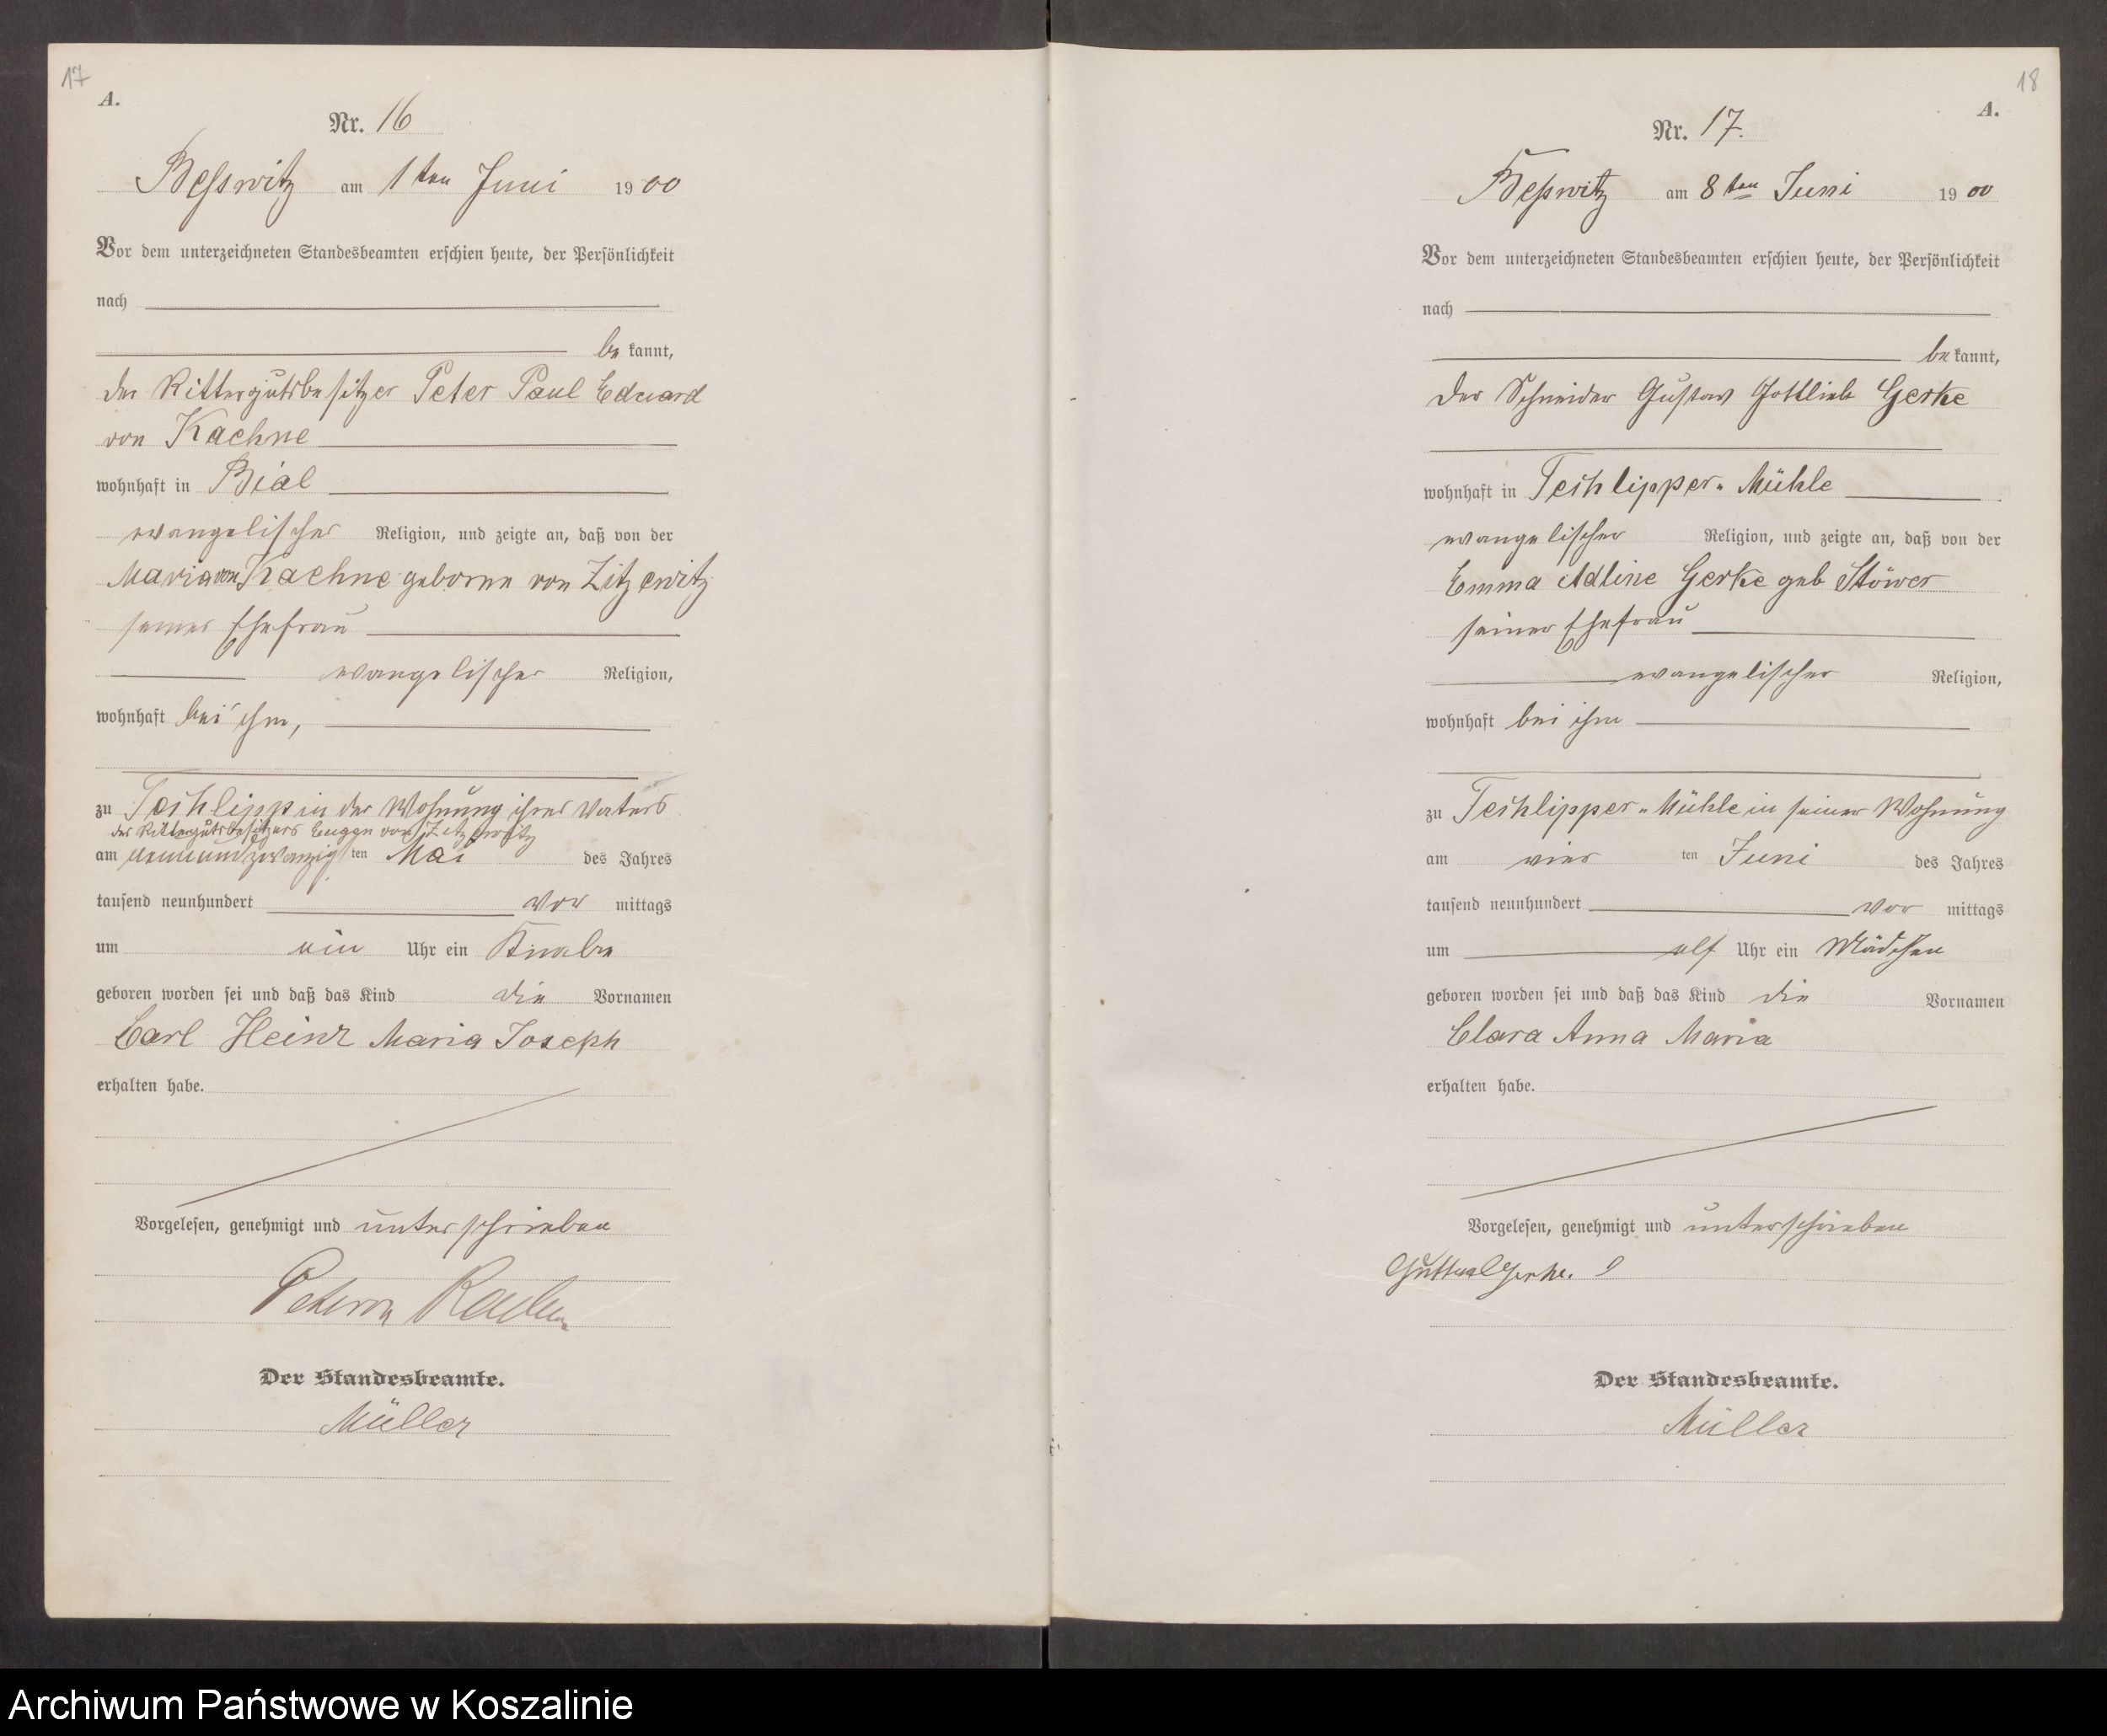 17
A.
Nr. 16
Besswitz am 1ten Juni 1900
Vor dem unterzeichneten Standesbeamten erschien heute, der Persönlichkeit
nach
be kannt,
der Rittergutsbesitzer Peter Paul Eduard
von Kaehne
wohnhaft in Bial
evangelischer Religion, und zeigte an, daß von der
Maria von Kaehne geborne von Zitzewitz
seiner Ehefrau
evangelischer Religion,
wohnhaft bei ihm,
zu Techlipp in der Wohnung ihres Vaters
des Rittergutsbesitzers von Zitzewitz
am neunundzwanzig ten Mai des Jahres
tausend neunhundert vor mittags
um ein Uhr ein Knabe
geboren worden sei und daß das Kind die Vornamen
Carl Heinz Maria Joseph
erhalten habe.
Vorgelesen, genehmigt und unterschrieben
Peter von Kaehne
Der Standesbeamte.
Müller
18
A.
Nr. 17.
Beßwitz am 8ten Juni 1900
Vor dem unterzeichneten Standesbeamten erschien heute, der Persönlichkeit
nach
be kannt,
der Schneider Gustav Gottlieb Gerke
wohnhaft in Techlipper-Mühle
evangelischer Religion, und zeigte an, daß von der
Emma Adline Gerke geb Stöwer
seiner Ehefrau
evangelischer Religion,
wohnhaft bei ihm
zu Techlipper-Mühle in seiner Wohnung
am vier ten Juni des Jahres
tausend neunhundert vor mittags
um elf Uhr ein Mädchen
geboren worden sei und daß das Kind die Vornamen
Clara Anna Maria
erhalten habe.
Vorgelesen, genehmigt und unterschrieben
Gustav Gerke.
Der Standesbeamte.
Müller
Archiwum Państwowe w Koszalinie